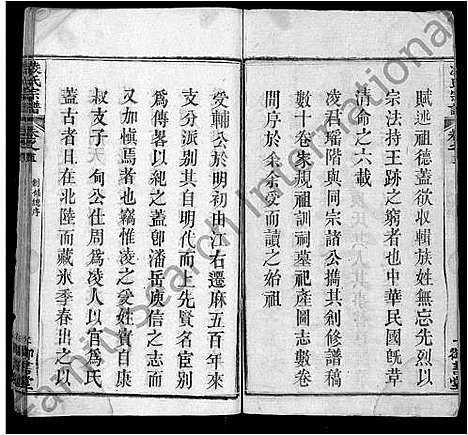 賦述祖德蓋欲收輯族姓無忘先烈以
宗法持王跡之窮者也中華民國旣革
清命之六載
凌君瑤階與同宗諸公擕其創修譜稿
數十卷朱規祖訓祠墓祀產圖志數卷
間序於余余受而讀之始祖
受輔公於明初由江右遷麻五百年來
支分派别其自明代而上先賢名臣別
爲傳畧以紀之蓋卽潘岳庾信之志而
又加愼焉者也竊惟凌之受姓實自康
叔支子
甸公仕周爲凌人以官爲氏
蓋古者日在北陸而藏氷季春出之以
凌氏宗譜
卷之首
創修總序
FamilySearch International